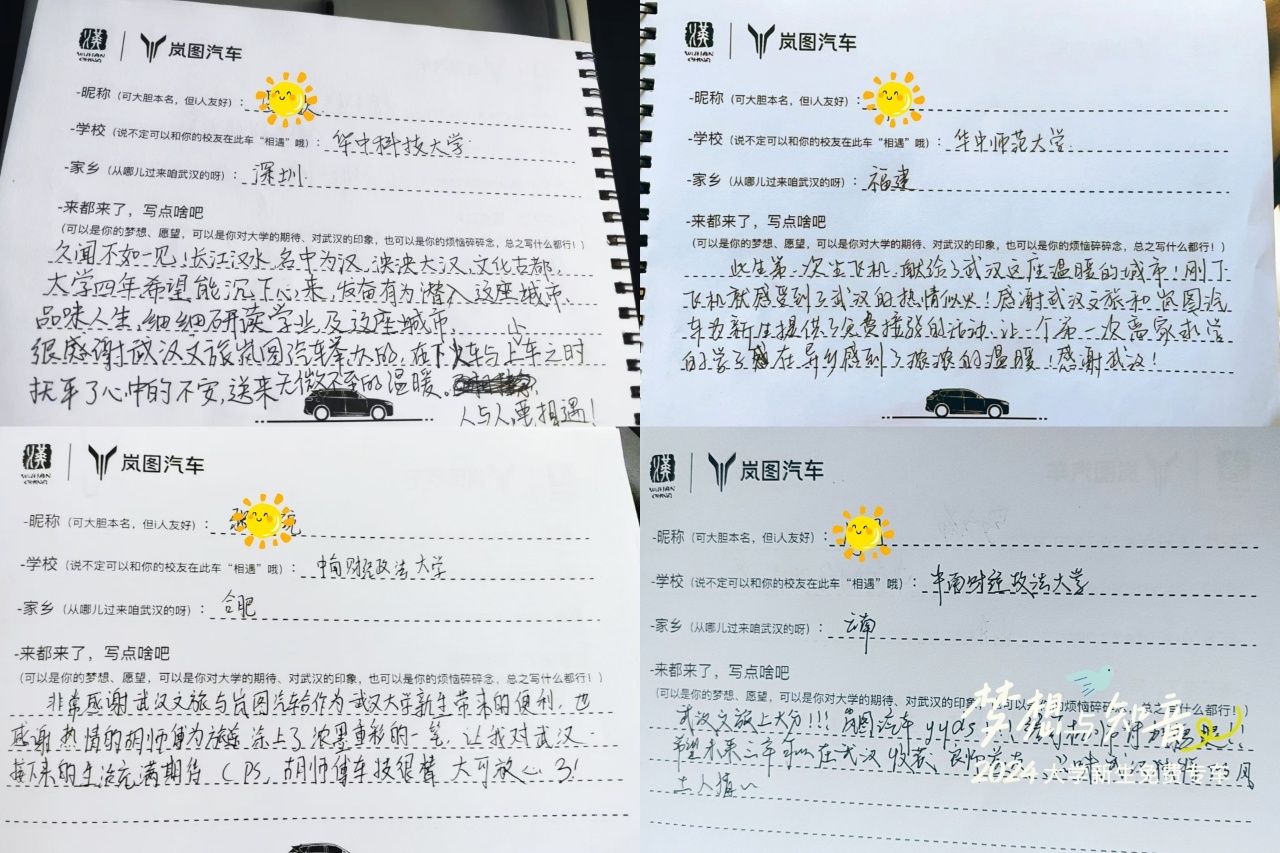 漢
WUHAN CHINA
岚图汽车
-昵称（可大胆本名，但i人友好）：
-学校（说不定可以和你的校友在此车“相遇”哦）：华中科技大学
-家乡（从哪儿过来咱武汉的呀）：深圳
-来都来了，写点啥吧
（可以是你的梦想、愿望，可以是你对大学的期待、对武汉的印象，也可以是你的烦恼碎碎念，总之写什么都行！）
久闻不如一见，长江汉水，名中为汉，泱泱大汉，文化古都，
大学四年希望能沉下心来，发奋有为潜入这座城市、
品味人生，细细研读学业及这座城市，
很感谢武汉文旅岚图汽车举办的，在下火车与上车之时
抚平了心中的不安，送来无微不至的温暖。
人与人要相遇！
漢
WUHAN CHINA
岚图汽车
-昵称（可大胆本名，但i人友好）：
-学校（说不定可以和你的校友在此车“相遇”哦）：华中师范大学
-家乡（从哪儿过来咱武汉的呀）：福建
-来都来了，写点啥吧
（可以是你的梦想、愿望，可以是你对大学的期待、对武汉的印象，也可以是你的烦恼碎碎念，总之写什么都行！）
此生第一次坐飞机，献给了武汉这座温暖的城市！刚下
飞机就感受到了武汉的热情似火！感谢武汉文旅和岚图汽
车为新生提供了免费接驳的活动，让一个第一次离家求学
的学子在异乡感到了浓浓的温暖！感谢武汉！
漢
WUHAN CHINA
岚图汽车
-昵称（可大胆本名，但i人友好）：
-学校（说不定可以和你的校友在此车“相遇”哦）：中南财经政法大学
-家乡（从哪儿过来咱武汉的呀）：合肥
-来都来了，写点啥吧
（可以是你的梦想、愿望，可以是你对大学的期待、对武汉的印象，也可以是你的烦恼碎碎念，总之写什么都行！）
非常感谢武汉文旅与岚图汽车合作为武汉大学新生带来的便利，也
感谢热情的胡师傅为旅途添上了浓墨重彩的一笔，让我对武汉
接下来的生活充满期待（PS，胡师傅车技很赞，大可放心了！
漢
WUHAN CHINA
岚图汽车
-昵称（可大胆本名，但i人友好）：
-学校（说不定可以和你的校友在此车“相遇”哦）：中南财经政法大学
-家乡（从哪儿过来咱武汉的呀）：云南
-来都来了，写点啥吧
（可以是你的梦想、愿望，可以是你对大学的期待、对武汉的印象，也可以是你的烦恼碎碎念，总之写什么都行！）
武汉文旅上大分！！！岚图汽车yyds
希望未来 可以在武汉收获
土人情
梦想与知音
2024大学新生免费专车